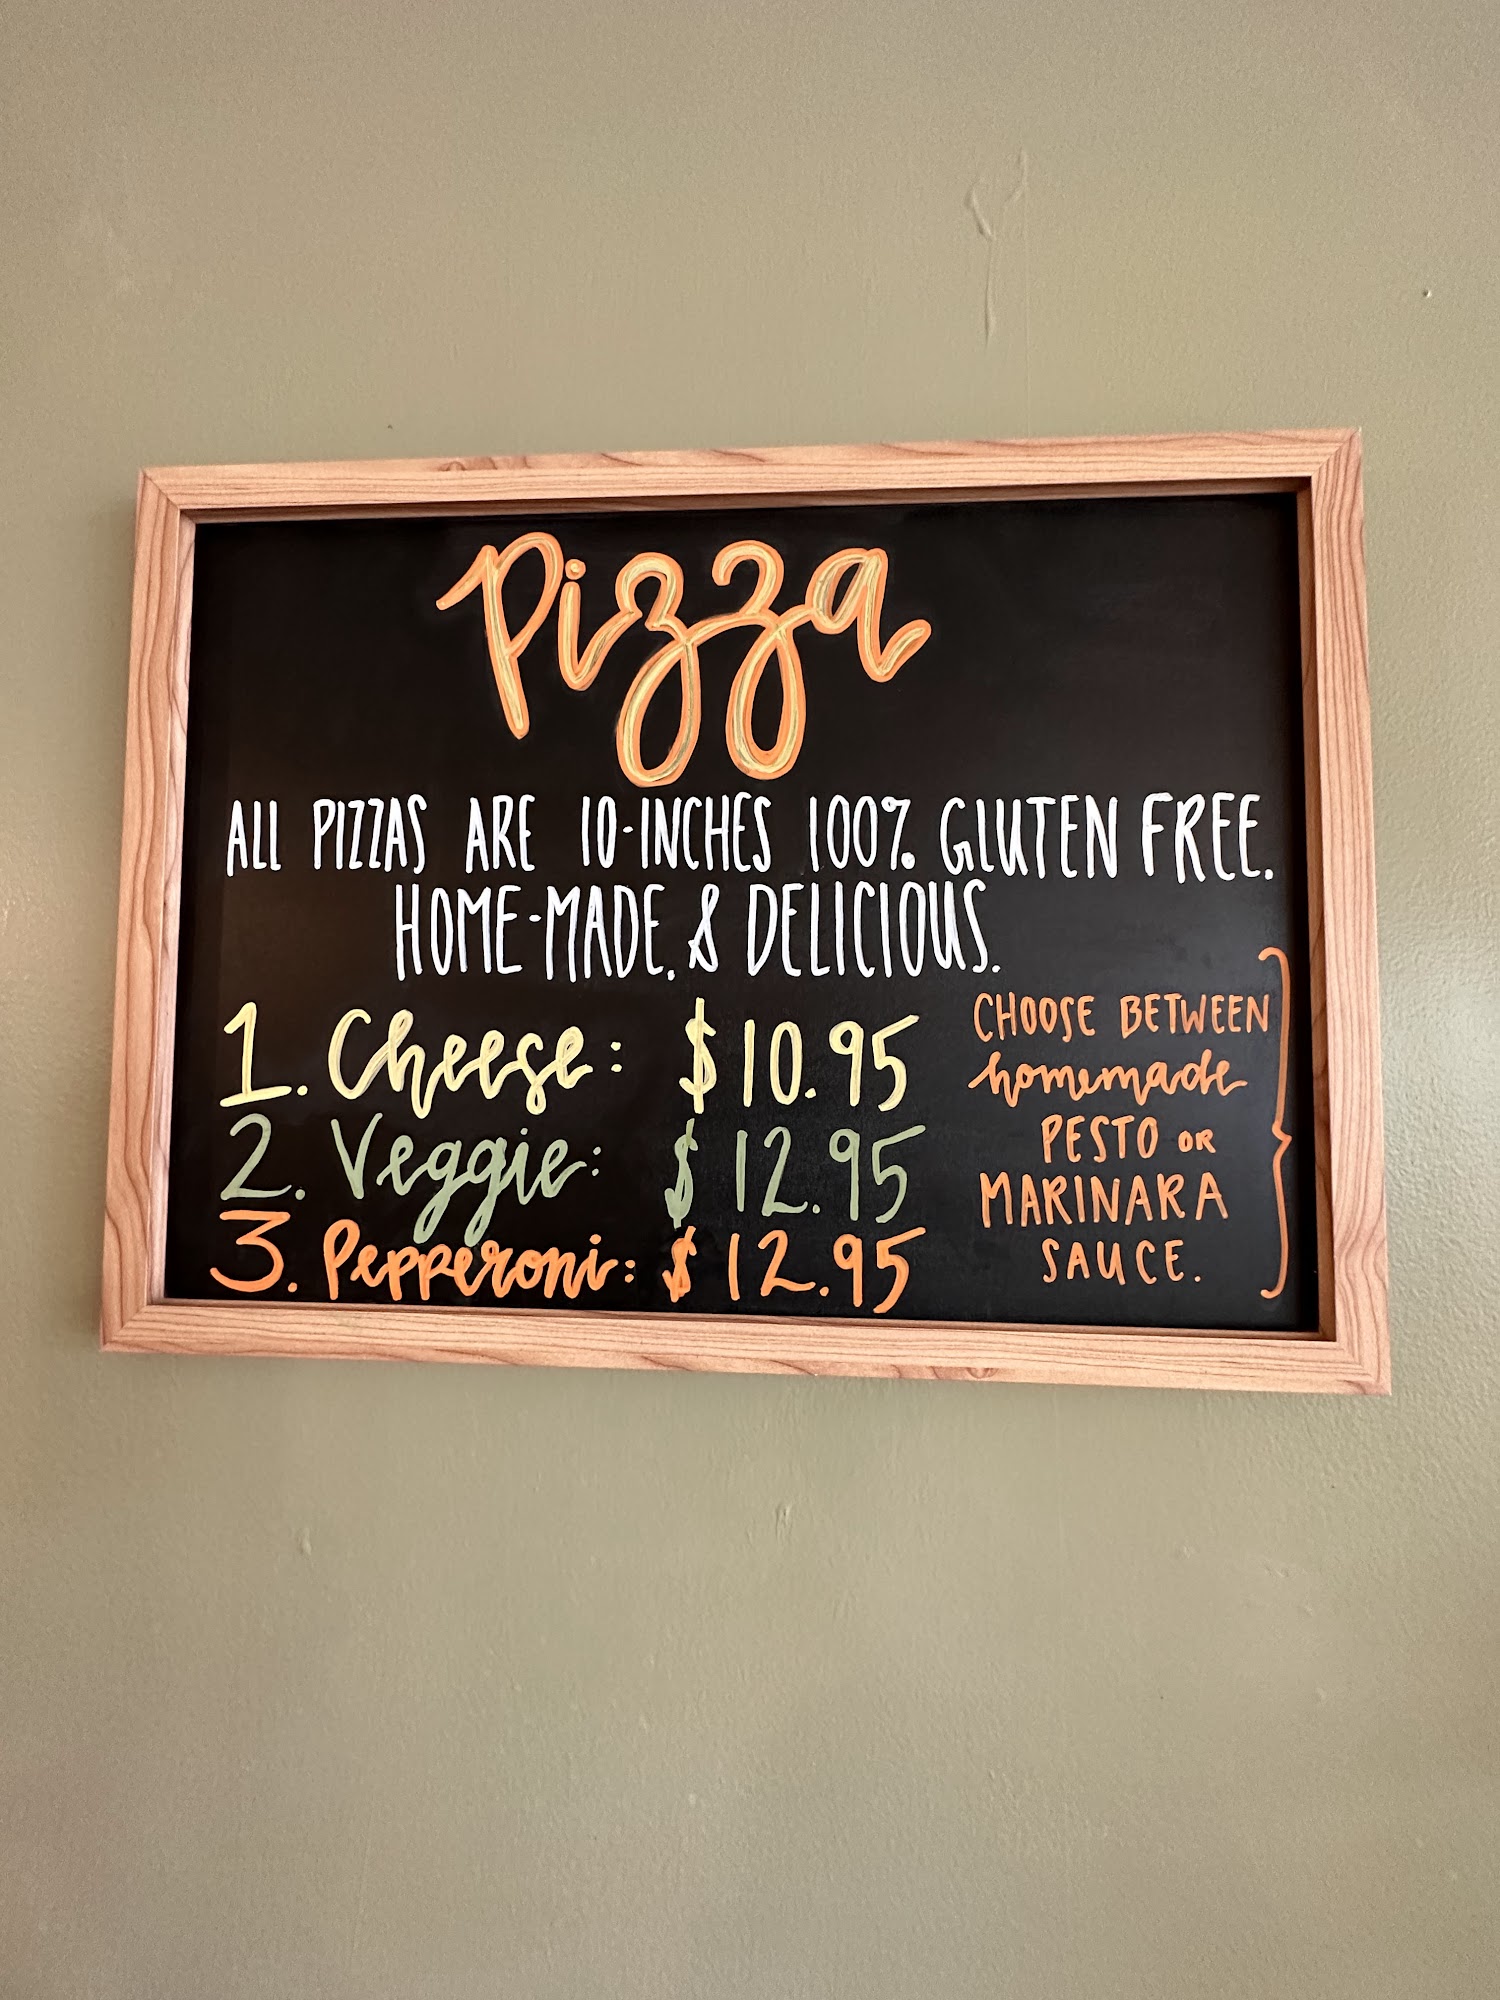 Pizza
ALL PIZZAS ARE 10-INCHES 100% GLUTEN FREE.
HOME-MADE, & DELICIOUS.
1. Cheese: $10.95
2. Veggie: $12.95
3. Pepperoni: $12.95
CHOOSE BETWEEN
homemade
PESTO OR
MARINARA
SAUCE.